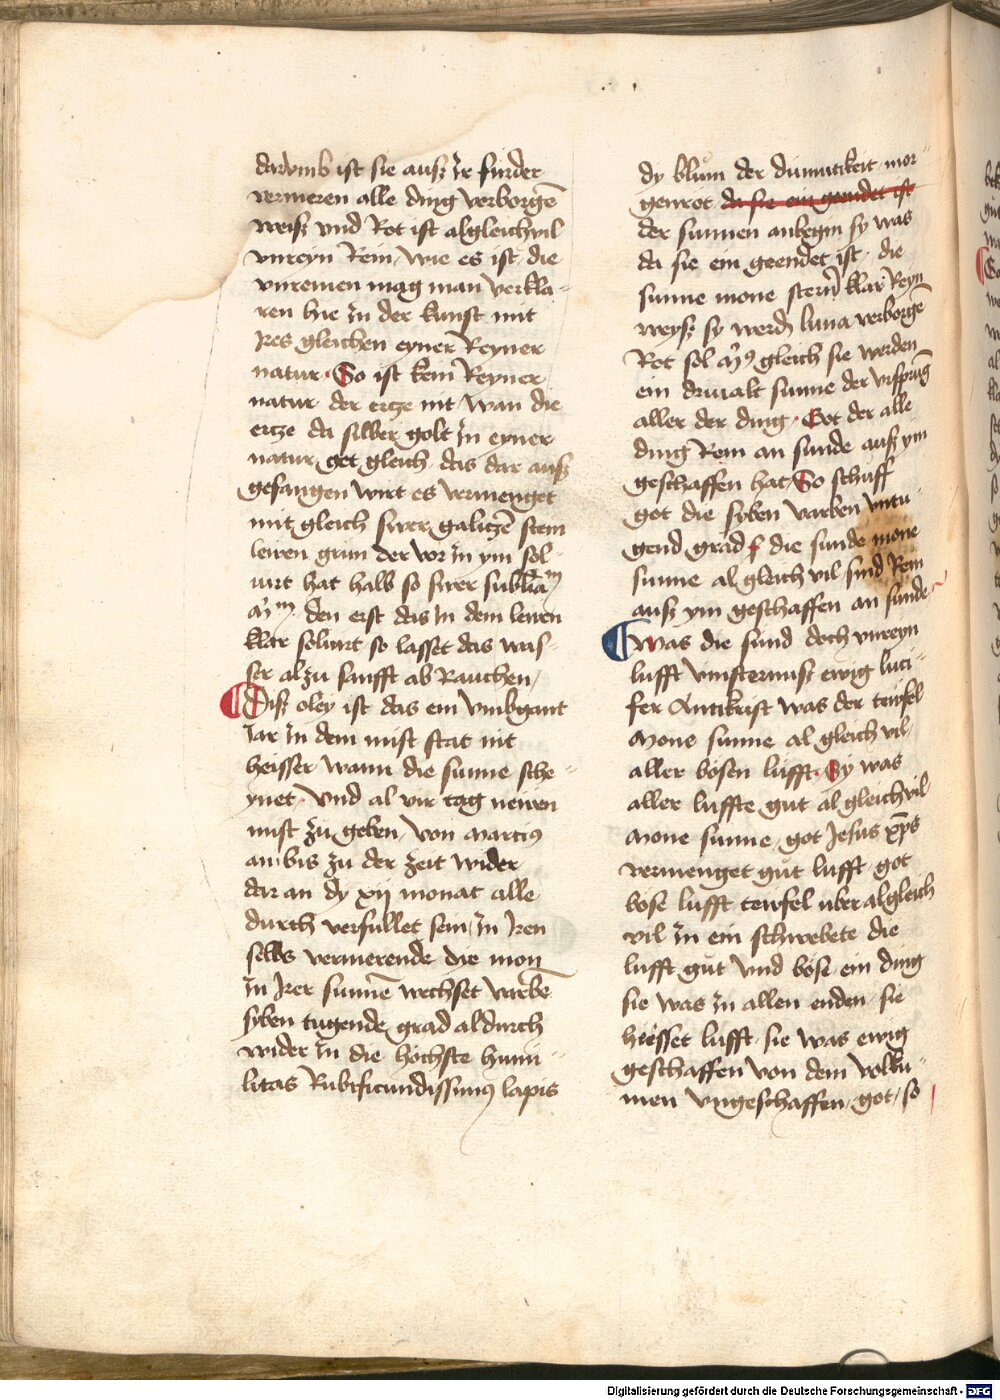 darvmb ist sie auß Jr furder
vermeren alle ding verborgē
weiß vnd Rot ist algleichvil
vnreyn Rein, wie es ist, die
vnreinen mag man verkla-
ren hie Jn der kunst mit
Jres gleichen eyner Reyner
natur. So ist kein Reyner
natur der ercze nit, wan die
ercze da silber golt Jn eyner
natur get gleich das dar auß
gefangen wirt es vermenget
mit gleich swer galiczē stein
lewen grun der vor Jn ym sol-
uirt hat halb so swer
den erst das Jn dem lewen
klar soluirt so lasset das was-
ser alzu sanfft ab Rauchen,
Diß oley ist das ein vmbgant
Jar Jn dem mist stat nit
heisser wann die sunne sche-
ynet. Vnd al vir tag newen
mist zu geben, von marcius
an bis zu der zeit wider
dar an dy xij monat alle
durch verfullet sein, Jn Jren
selbs vermerende die mon
Jn Jrer sunnē wechset varbe
syben tugende grad aldurch
wider Jn die hochste humi-
litas Rubificundissimus lapis
dy blum der diumutikeit mor-
genrot da sie ein geendet ist
der sunnen anbegin sy was
da sie ein geendet ist, die
sunne mone stern klar Reyn
weyß sy werd luna verborge
Rot sol gleich sie werden
ein druualt sunne der vrsprūg
aller der ding. Got der alle
ding Rein an sunde auß ym
geschaffen hat, So schuff
got die syben varben vntu-
gend grad die sunde mone
sunne al gleich vil sind Rein
auß ym geschaffen an sunde
was die sund doch vnreyn
lufft vinsternuß ewig luci-
fer Antikrist was der teufel
mone sunne al gleich vil
aller bosen lufft. Sy was
aller luffte gut al gleich vil
mone sunne, got Jesus xp̄s
vermenget gut lufft, got
bose lufft teufel uber al gleich
vil Jn ein schwebete die
lufft gut vnd bose, ein ding
sie was Jn allen enden, sie
heisset lufft, sie was ewig
geschaffen von dem volku-
men vngeschaffen, got, so
Digitalisierung gefördert durch die Deutsche Forschungsgemeinschaft - DFG